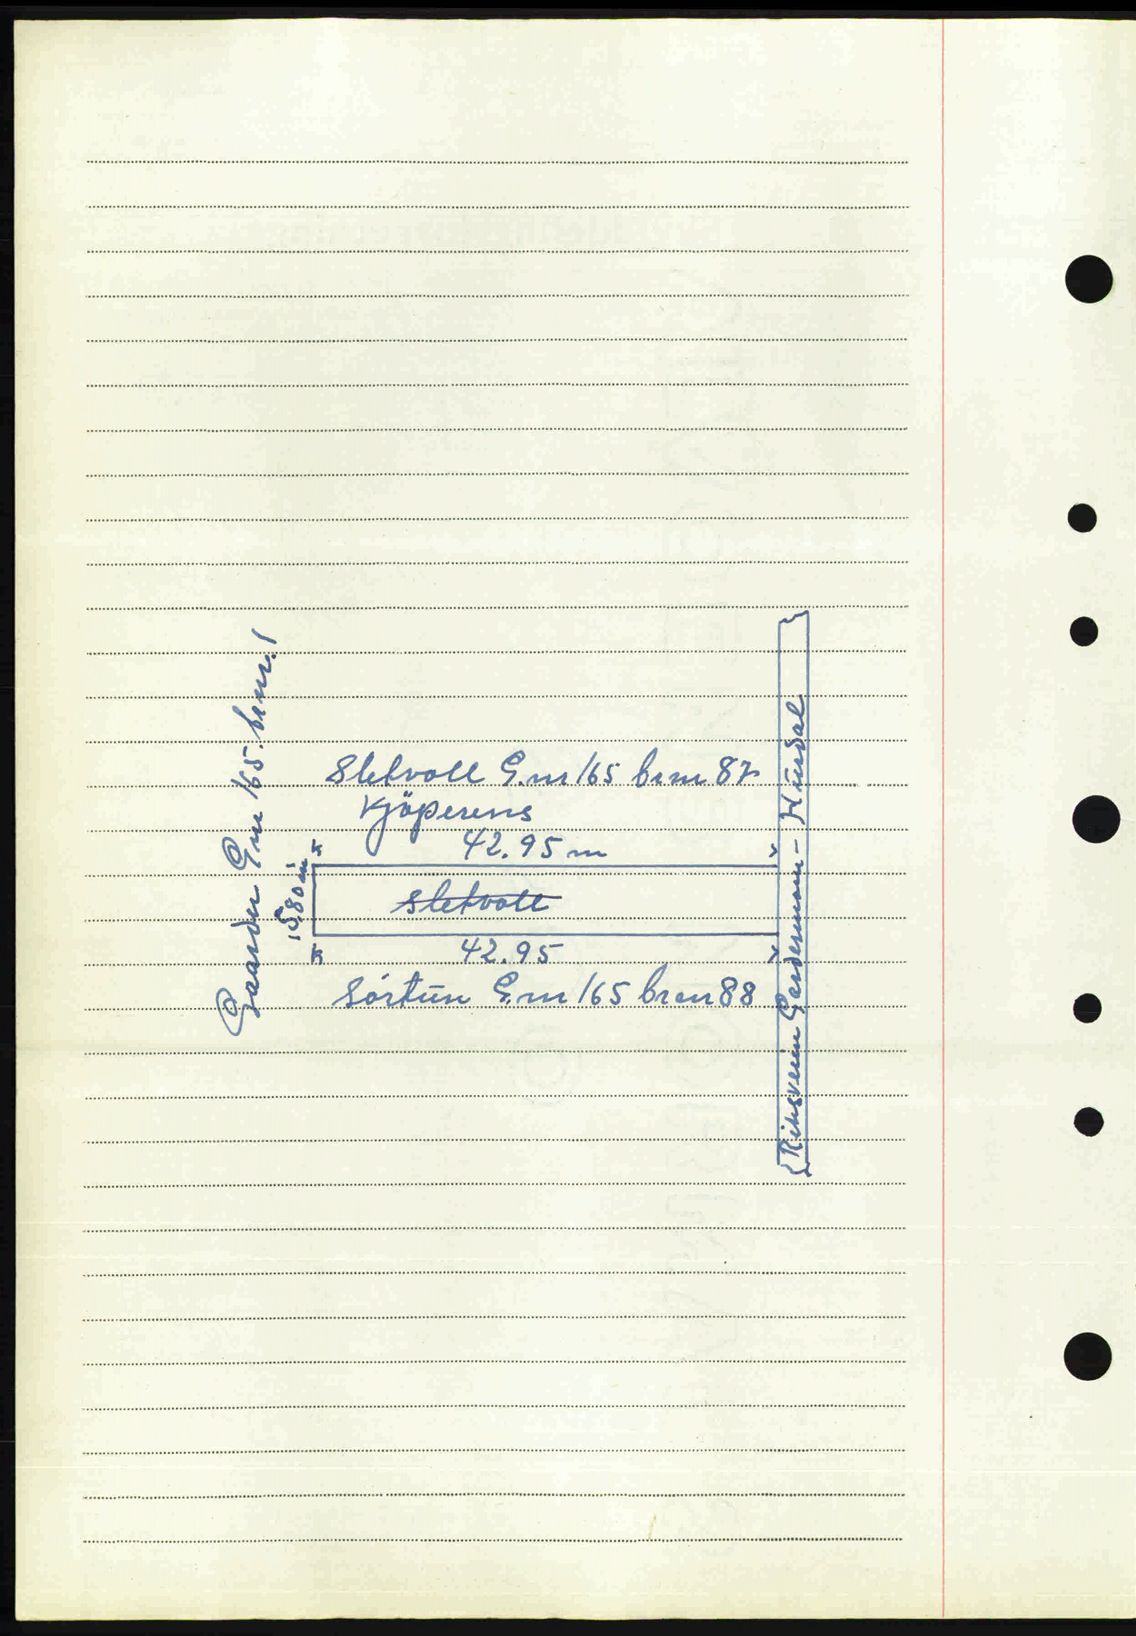 Gaarder G.nr 165. brnr. 1
Sletvoll G.nr 165 brnr 87
Kjöperens
42.95 m
5.80 m
Sletvoll
42.95
Sörtun G.nr 165 brnr 88
Riksveien Gardermoen - Hurdal